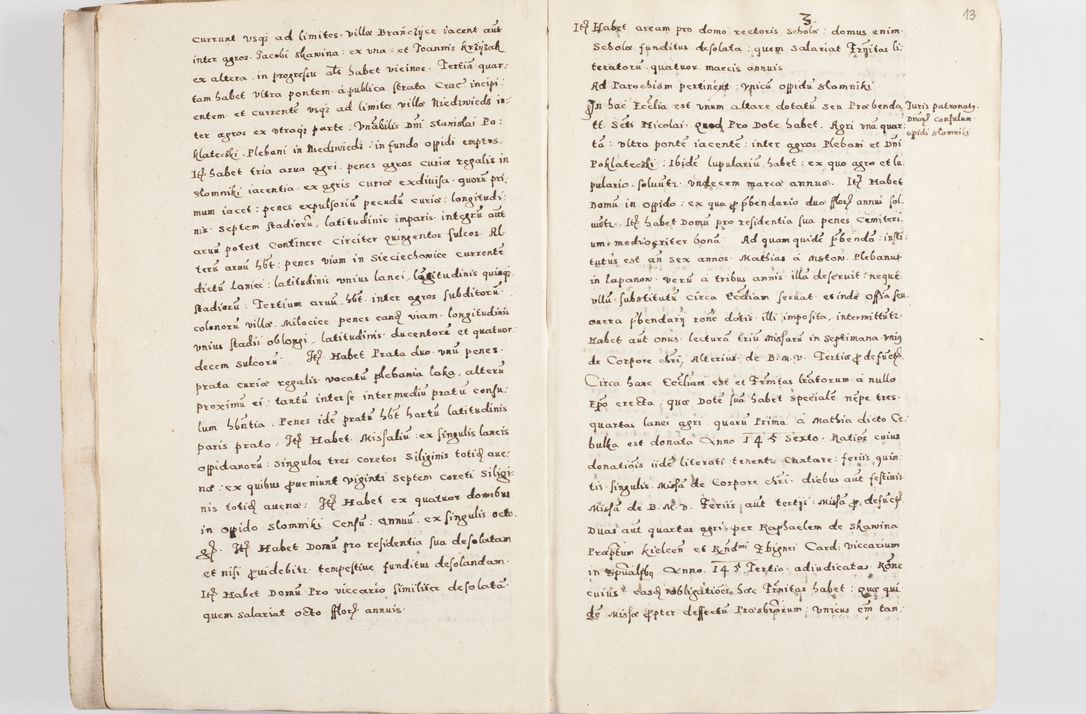 currunt usq₃ ad limites villæ Brańczÿce iacent aut
inter agros Jacobi Skawina : ex una : et Joannis krziżak
ex altera . in progressu als habet vicinos . Tertiā quar:
tam habet ultra pontem á publica strata Crac incipi:
entem et currentē usq₃ ad limites villæ Niedzwiedz in:
ter agros ex utroq₃ parte : Vnābilis Dñi Stanislai Po:
klateczki . Plebani in Niedzwiedz . in fundo oppidi emptos.
Itē habet tria arua agri . penes agros curiæ regalis in
Slomniki iacentia . ex agris curiæ exdiuisa . quorū pri:
mum iacet : penes expulsoriū pecudū curiæ : longitudi:
nis . septem stadiorū , latitudinis imparis . integrū aut
aruū potest continere circiter quingentos sulcos . Al:
terū aruū hbt : penes viam in Sieciechowice currentē
dictū Laniec : latitudinis unius lanei longitudinis quinq₃
stadiorū . Tertium aruū . hbt . inter agros subditorū .
colonorū villæ . Milocice penes eand viam . longitudinis
unius stadii oblongi , latitudinis ducentorū et quatuor
decem sulcorū . Itē Habet Prata duo . unū penes
prata curiæ regalis vocatū plebania laka , alterū
proximū ei : tantū inter se intermediū pratū consu:
lum hbntia . Penes ide pratū hbt hortū latitudinis
paris prato . Itē Habet Missaliū : ex singulis laneis
oppidanorū : singulos tres coretos siliginis totid aue:
næ : ex quibus pueniunt viginti septem coreti siligi:
nis totid auenæ : Itē Habet ex quatuor domibus
in oppido Slomniki Censū : Annuū . ex singulis octo
gs . Itē Habet Domū pro residentia sua desolatam
et nisi puidebitr tempestiue funditus desolandam .
Itē Habet Domū Pro viccario similiter desolatā
quem salariat octo fflor annuis
3
13
Itē Habet aream pro domo rectoris Scholæ : domus enim
Scholæ funditus desolata ; quem salariat Frnitas li:
teratorū . quatuor marcis annuis
Ad Parochiam pertinent : Vnicū oppidū Slomniki
In hac Ecclia est unum altare dotatū seu Præbenda
tt Scti Nicolai . Quod Pro Dote habet . Agri unā quar:
tā : ultra pontē iacentē : inter agros Plebani et Dñi
Poklateczki : Ibidē lupulariū habet : ex quo agro et lu:
pulario . soluuntr undecem marcæ annuæ . Itē Habet
Domū in oppido : ex qua p pbendario duo fflor annui sol:
uutr . Itē habet Domū pro residentia sua penes Cemiteri:
um . mediocriter bonā . Ad quam quidē pbendā : insti:
tutus est an sex annos Mathias á Mston . Plebanus
in Lapanow . verū a tribus annis illā deseruit : neque
ullū substitutū circa Eccliam seruat . et inde offia seu
onera pbendarij rone dotis . illi imposita , intermittutr .
Habet aut onus . lecturā triū Missarū in septimana . unius
de Corpore chri . Alterius . de B . M . V . Tertiæ p defuct .
Circa hanc Eccliam est et Frnitas lratorum . á nullo
Epo erecta , quæ Dote suā habet speciale nepe tres .
quartas lanei agri . quarū Prima . á Mathia dicto Ce:
bulka est donata Anno 145 sexto . Ratione cuius
donationis iidē literati tenentr cantare : feriis quin:
tis . singulis . Missā de Corpore chri . diebus aut festiuis
Missā de B . M . V . Feriis , aut tertijs : Missā p . defuct
Duas aut quartas agri . per Raphaelem de Skawina
Præptum kielcen et Rndmi Zbignei Card : Viccarium
in spualibs Anno . 145 Tertio . adiudicatas . Rone
cuius easd obligationes hæc Frnitas habet : quæ qui:
dē Missæ ppter deffectū Præsbirorum ; unicus em tan:
Juris patronatus
Dnorz Consulum
opidi Slomniki